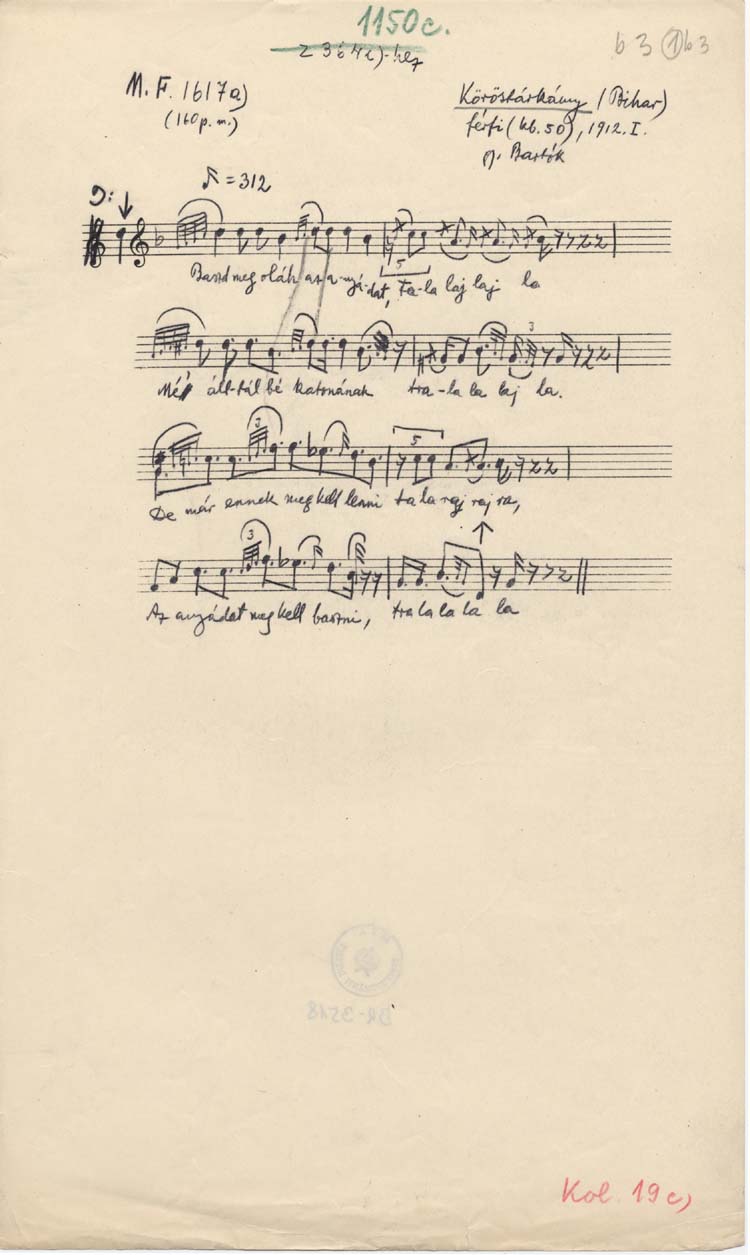 1150c.
z 3642)-hez
b 3 1 b 3
M. F. 1617a)
(160 p. m.)
Köröstárkány (Bihar)
férfi (kb. 50), 1912. I.
gy. Bartók
= 312
Baszd meg oláh az a-nyá-dat, Ta-la laj laj la
5
Mér áll-tál bé katonának tra-la la laj la.
3
3
5
De már ennek meg kell lenni ta la raj raj ra,
3
Az anyádat meg kell baszni, tra la la la la
BR-3518
Kol. 19c)